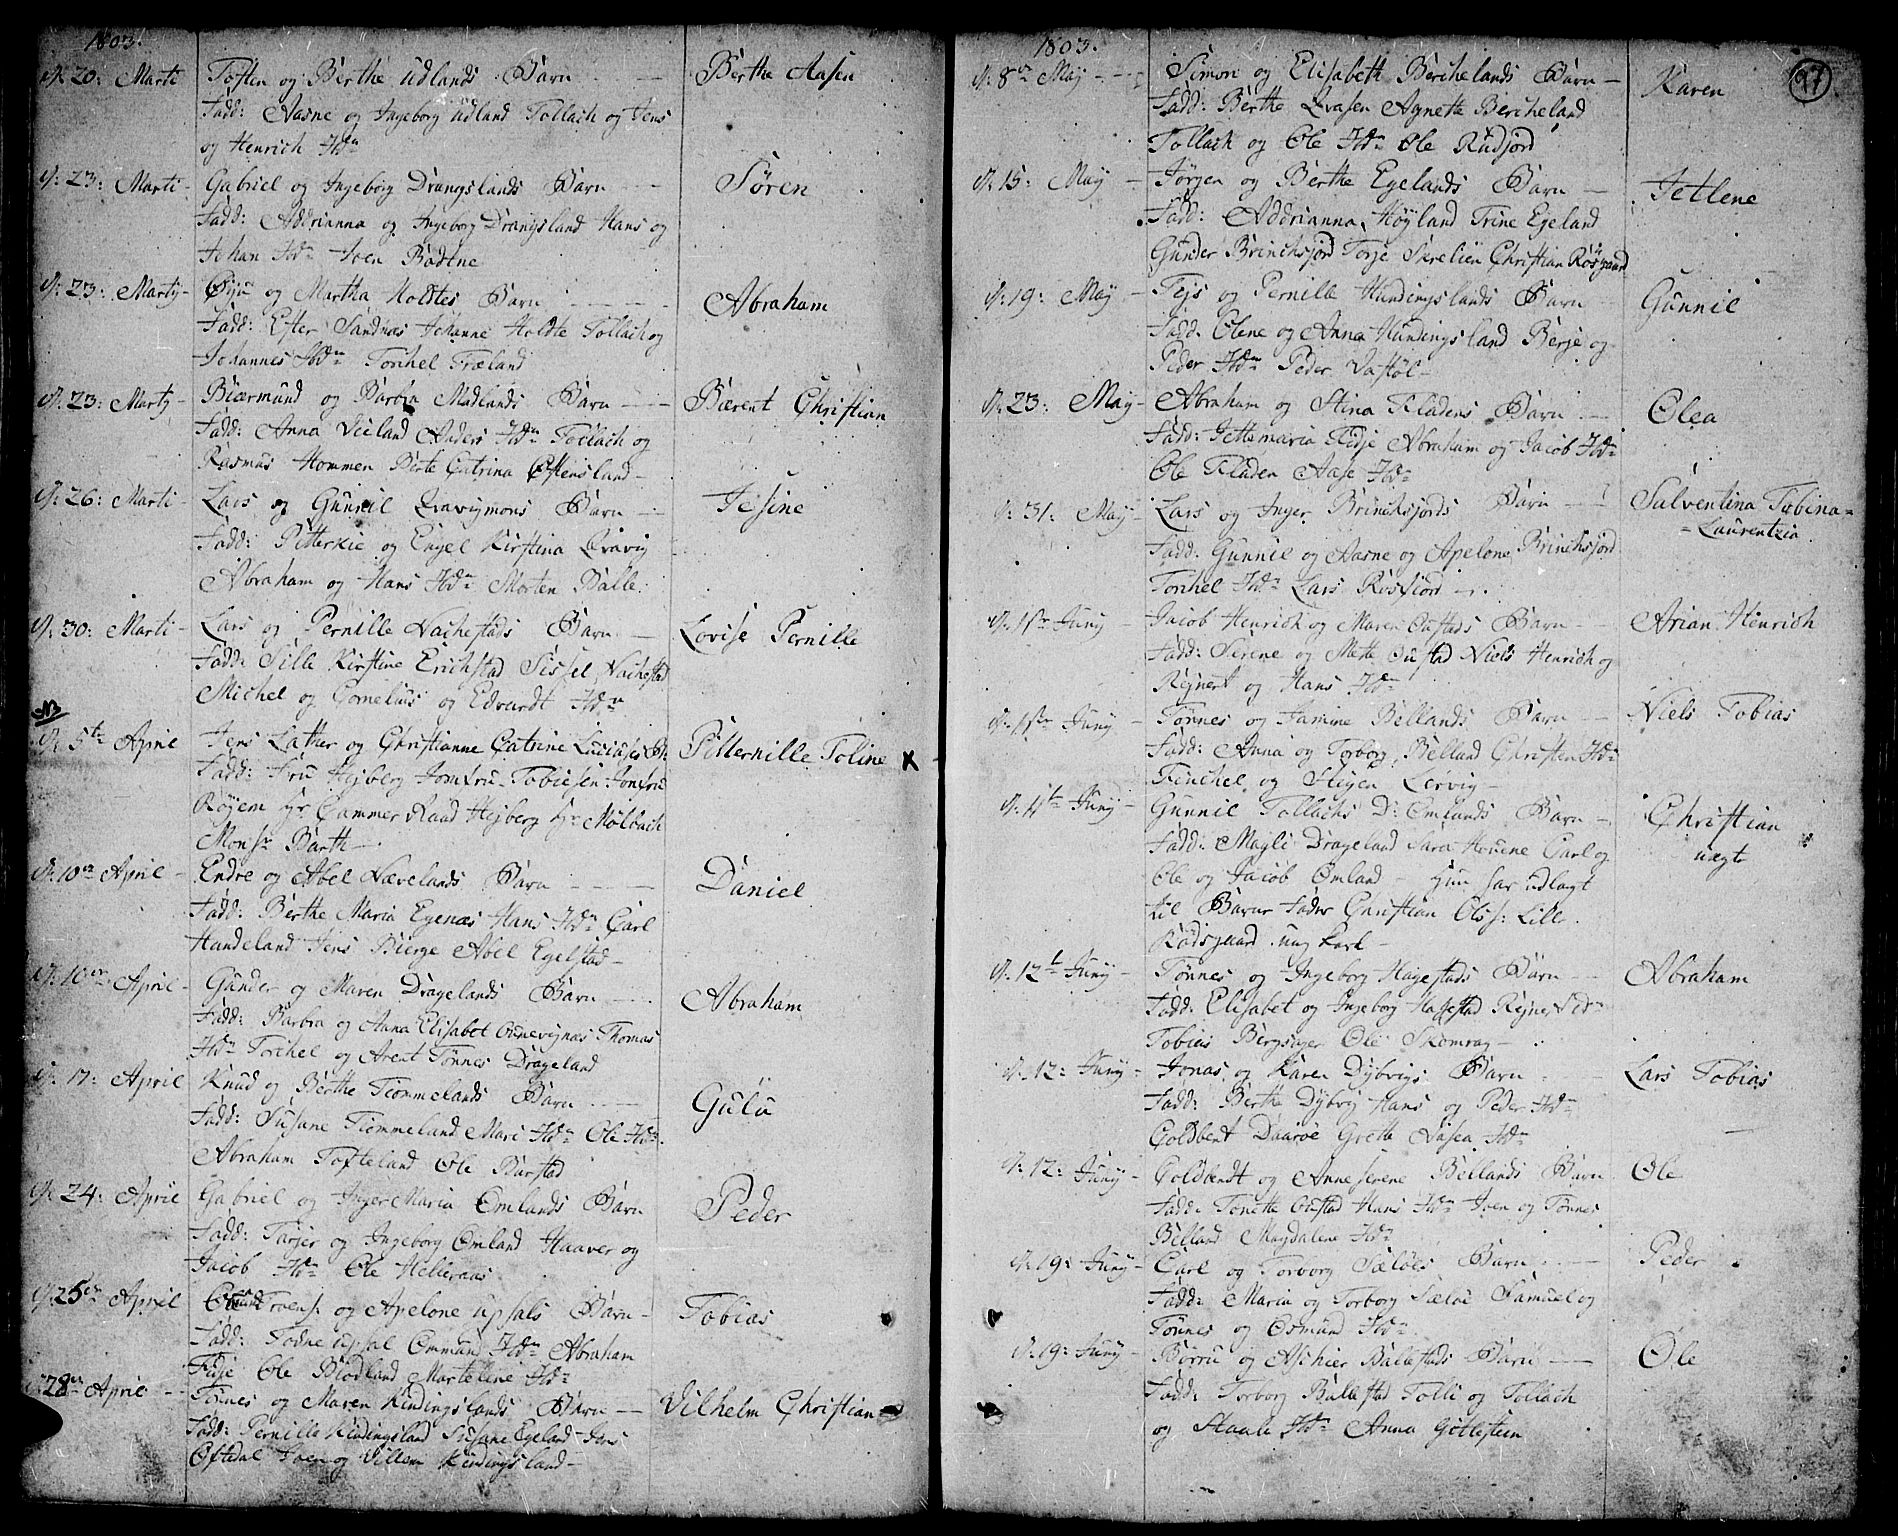 1803.
d: 20: Marti Tosten og Berthe Udlands Barn Berthe Aasen
Fadd: Aasne og Ingeborg Udland Tollach og Jens
og Henrich Ibdn
d: 23: Marti - Gabriel og Ingeborg Drangslands Barn Søren
Fadd: Addrianna og Ingeborg Drangsland Hans og
Johan Ibdn Joen Bødtne
d: 23: Marty - Øyu og Martha Holdtes Barn Abraham
Fadd: Efter Sandnæs Johanne Holdte Tollach og
Johannes Ibdn Torchel Træland
d: 23: Marty - Biærmund og Barbra Madlands Barn Bærent Christian
Fadd: Anna Vieland Anders Ibdn Tollach og
Rasmus Hommen Berte Catrina Østensland -
d: 26: Marti - Lars og Gunnil Qvavigmons Barn Jesine
Fadd: Pitterkie og Engel Kirstina Qvavig
Abraham og Hans Ibdn Morten Balle
d: 30: Marti - Lars og Pernille Nachestads Barn Lovise Pernille
Fadd: Sille Kirstine Erichstad Sissel Nachestad
Michel og Cornelius og Edvardt Ibdn
NB
d: 5te April Jens Lather og Christianne Catrine Pitternille Toline x
Fadd: Fru Hejberg Jomfru Tobiesen Jomfru
Røyem Hr Cammer Raad Hejberg Hr Mølbach
Monsr Barth -
d: 10de April - Endre og Abel Nævelands Barn Daniel
Fadd: Berthe Maria Egenæs Hans Ibdn Carl
Handeland Jens Bierge Abel Egelstad -
d: 10de April - Gunder og Maren Dragelands Barn Abraham
Fadd: Barbra og Anna Elisabet Thomas
Ibdn Torchel og Arent Tønnes Drageland
d: 17: April Knud og Berthe Tiommelands Barn Gulu
Fadd: Susane Tiommeland Mari Ibdn Ole Ibdn
Abraham Tofteland Ole Barstad
d: 24: April Gabriel og Inger Maria Omlands Barn Peder
Fadd: Tarjer og Ingeborg Omland Haaver og
Jacob Ibdn Ole Helleraas
d: 25de April og Apelone Upsals Barn - Tobias
Fadd: Todne Upsal Ommund Ibdn Abraham
Fidje Ole Blødland Marteline Ibdn
28de April - Tønnes og Maren Kindingslands Barn Vilhelm Christian
Fadd: Pernille Kindingsland Susane Egeland Jens
Oftedal Joen og Villem Kindingsland -
1803.
97
d: 8de May Simon og Elisabeth Berchelands Barn - Karen
Fadd: Berthe Qvasen Agnette Bercheland
Tollach og Ole Ibdn Ole Rudjord
d: 15: May - Jørgen og Berthe Egelands Barn Jetlene
Fadd: Addrianna Høyland Trine Egeland
Gunder Brinchsjord Torje Skrelien Christian Røsgaard
d: 19: May - Tejs og Pernille Hundingslands Barn Gunnil
Fadd: Olene og Anna Hundingsland Berje og
Peder Ibdn Peder Vastøl -
d: 23: May - Abraham og Stina Fladens Barn Olea
Fadd: Jettemaria Fidje Abraham og Jacob Ibdn
Ole Fladen Aase Ibdn
d: 31: May - Lars og Inger Brinchsjords Barn Salventina Tobina =
= Laurentzia.
Fadd: Gunnil og Aasne og Apelone Brinchsjord
Torchel Ibdn Lars Rosfiord -
d: 1ste Juny - Jacob Henrich og Maren Oustads Barn Arian Henrich
Fadd: Serene og Mette Oustad Niels Henrich og
Rejnert og Hans Ibdn
d: 1ste Juny - Tønnes og Jamine Bellands Barn Niels Tobias
Fadd: Anna og Torborg Belland Christen Ibdn
Finchel og Stigen Lervig -
Juny - Gunnil Tollachs D: Omlands Barn - Christian
uægte
Fadd: Magli Drageland Sara Houene Carl og
Ole og Jacob Omland - Hun har udlagt
til Barne Fader Christian Olss: Lille
Rødsgaard ung Karl -
d: 12te Juny - Tønnes og Ingeborg Hagestads Barn Abraham
Fadd: Elisabet og Ingeborg Hagestad Rejnert Ibdn
Tobias Bergsager Ole Skomrag -
d: 12: Juny - Jonas og Karen Dybvigs Barn Lars Tobias
Fadd: Berthe Dybvig Hans og Peder Ibdn
Goldbent Daaroe Grette Aasea Ibdn
d: 12: Juny - Goldbendt og Anne Serene Bellands Barn Ole
Fadd: Tonette Oustad Hans Ibdn Joen og Tønnes
Belland Magdalene Ibdn
d: 19: Juny - Carl og Torborg Sæløes Barn Peder
Fadd: Maria og Torborg Sæløe Samuel og
Tønnes og Osmund Ibdn
d: 19: Juny - Børru og Aschier Ballestads Barn Ole
Fadd: Torborg Ballestad Tolli og Tollach
og Staale Ibdn Anna Gollestein